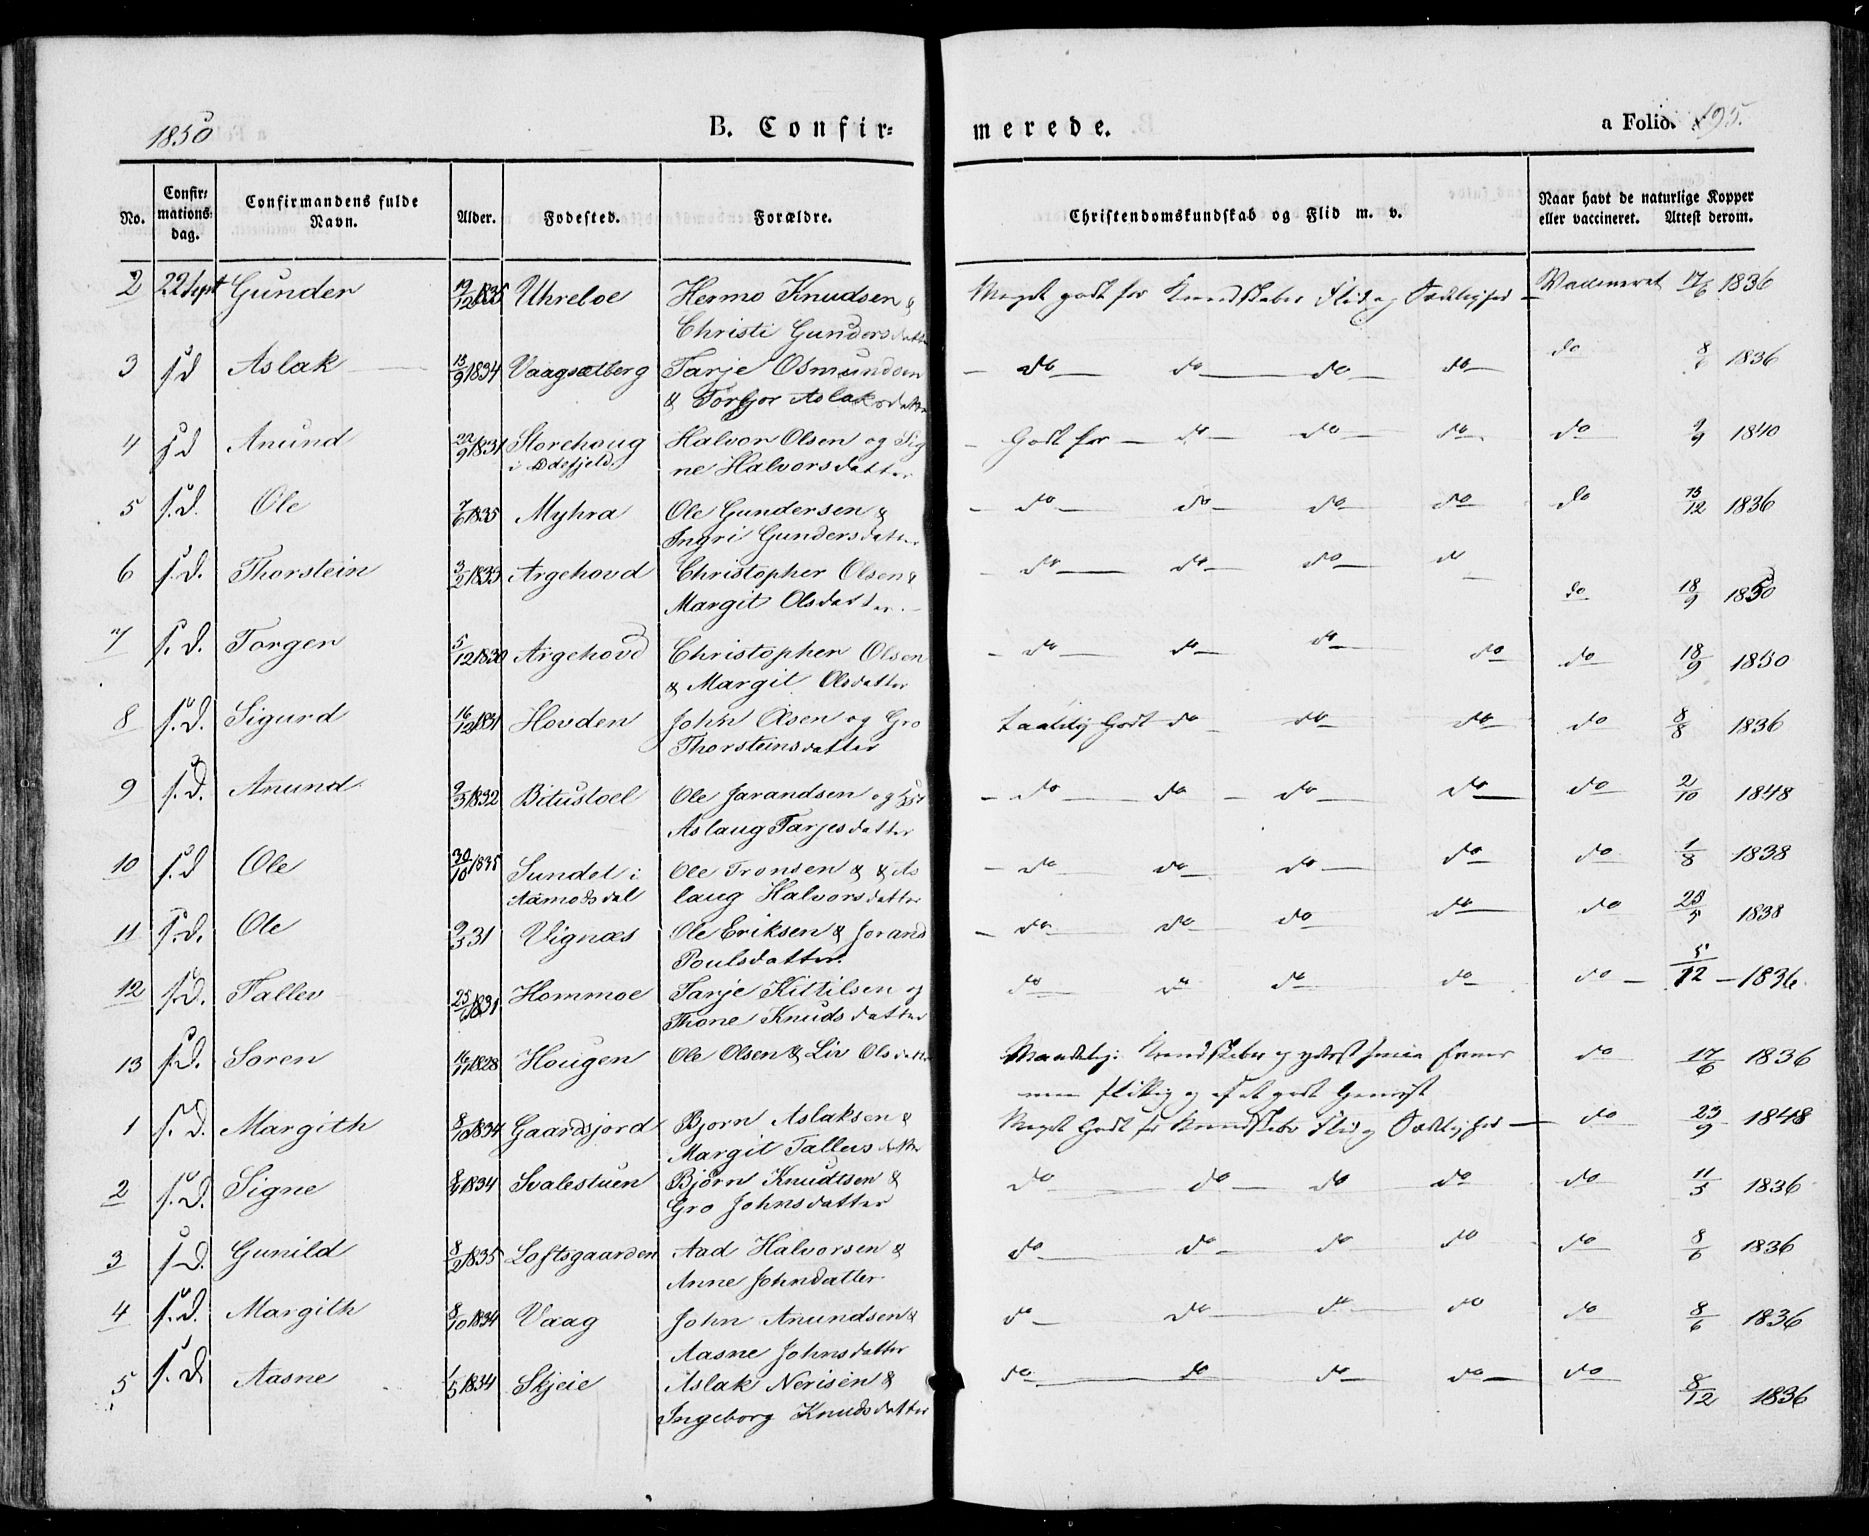 1850 B. Confir= merede. a Folio. 195.
No. Confir= mations= dag. Confirmandens fulde Navn. Alder. Fodested. Forældre. Christendomskundskab og Flid m. v. Naar havt de naturlige Kopper eller vaccineret. Attest derom.
2 22 Sept Gunder 19/12 1835 Uhreboe Hermo Knudsen & Meget godt for Kundskaber Flid og Sædelighed Vaccineret 17/6 1836
Christi Gundersdatter
3 s d Aslak 13/9 1834 Vaagsætberg Tarje Osmundsen do do do do do 8/6 1836
& Torbjor Aslaksdatter
4 s d Anund 22/9 1831 Storehoug Halvor Olsen og Sig Godt for do do do do 9/9 1840
ne Halvorsdatter
5 s. d. Ole 7/6 1835 Myhra Ole Gundersen & do do do do do 13/12 1836
Ingri Gundersdatter
6 s. d. Thorstein 3/2 1833 Argehovd Christopher Olsen & do do do do do 18/9 1850
Margit Olsdatter
7 s. d. Torger 5/12 1830 Argehovd Christopher Olsen do do do do do 18/9 1850
& Margit Olsdatter
8 s. d. Sigurd 16/12 1831 Hovden John Olsen og Gro Taalelig Godt do do do do 8/8 1836
Thorsteinsdatter
9 s. d. Anund 9/3 1832 Bitustoel Ole Jarandsen og do do do do do 2/10 1848
Aslaug Tarjesdatter
10 s. d Ole 30/10 1835 Sundet i Ole Tronsen & As do do do do do 1/8 1838
Aamotsdal laug Halvorsdatter
11 s. d. Ole 9/3 31 Vignæs Ole Eriksen & Jorand do do do do do 23/5 1838
Poulsdatter.
12 s. d. Tallev 25/6 1831 Hommoe Tarje Kittilsen og do do do do do 5/12 1836
Thone Knudsdatter
13 s. d. Soren 16/11 1828 Hougen Ole Olsen & Liv Olsdatter Maadelig Kundskaber og yderst Evner do 17/6 1836
men flittig og af et godt
1 s. d. Margith 8/10 1834 Gaardsjord Bjorn Aslaksen & Meget Godt for Kundskaber Flid og Sædelighed do 23/9 1848
Margit Tallevsdatter
2 s. d. Signe 8/6 1834 Svalestuen Bjørn Knudtsen & do do do do do 11/5 1836
Gro Johnsdatter
3 s. d. Gunild 8/2 1835 Loftsgaarden Aad Halvorsen & do do do do do 8/6 1836
Anne Johndatter
4 s. d. Margith 8/10 1834 Vaag John Anundsen & do do do do do 8/6 1836
Aasne Johnsdatter
5 s. d. Aasne 1/5 1834 Skjeie Aslak Nerisen & do do do do do 8/12 1836
Ingeborg Knudsdatter